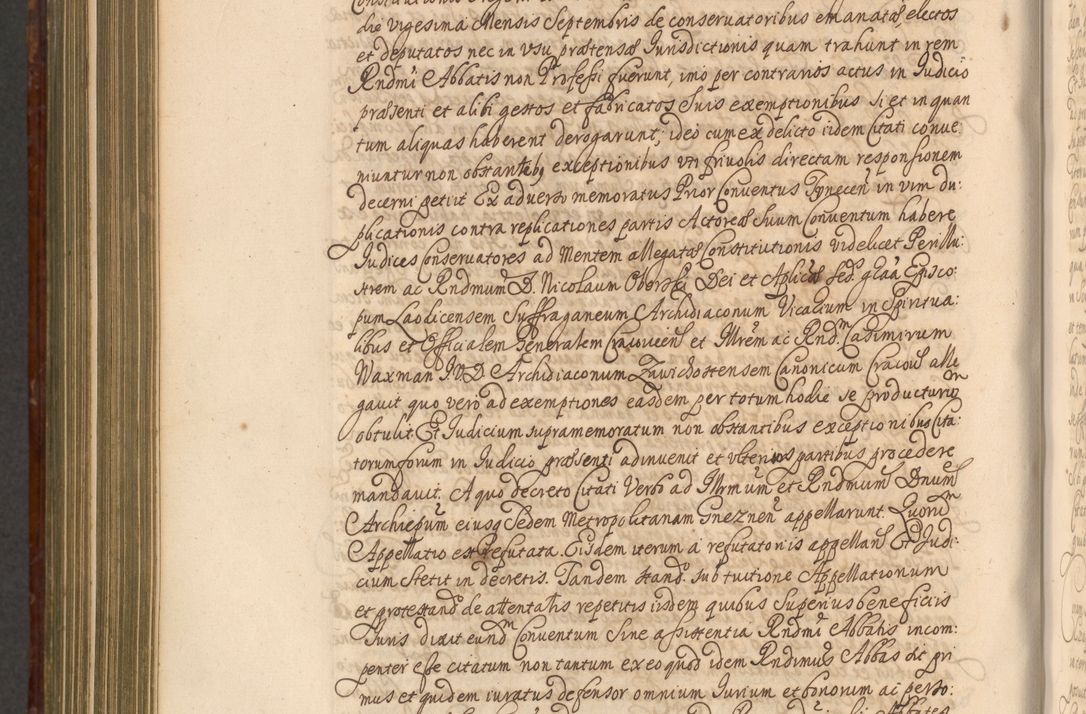 die vigesima Mensis Septembris de conservatoribus emanatæ, electos
et deputatos nec in usu prætensæ Iurisdictionis quam trahunt in rem
Rndmi Abbatis non Professi fuerunt, imo per contrarios actus in Iudicio
præsenti et alibi gestos et fabricatos suis exemptionibus si et in quan
tum aliquas haberent derogarunt; ideo cum ex delicto iidem Citati conve:
niuntur non obstantibq exceptionibus uti frivolis directam responsionem
decerni petiit Ex adverso memoratus Prior Conventus Tynecen in vim du:
plicationis contra replicationes partis Actoreæ suum Conventum habere
Iudices Conservatores ad Mentem allegatæ Constitutionis videlicet Perillu:
strem ac Rndmum D. Nicolaum Oborski Dei et Aplicæ Sed. gratia Episco:
pum Laodicensem Suffraganeum Archidiaconum Vicarium in Spiritua:
libus et Officialem Generalem Cracovien et Illrem ac Rnd. Casimirum
Waxman I.V.D. Archidiaconum Zavichostensem Canonicum Cracov alle
gavit quo vero ad exemptiones easdem per totum hodie se producturum
obtulit Et Iudicium supramemoratum non obstantibus exceptionibus Cita:
torum forum in Iudicio præsenti adinvenit et ulterius partibus procedere
mandavit. A quo decreto Citati Verbo ad Illrmum et Rndmum Dnum
Archiepum eiusq Sedem Metropolitanam Gneznen appellarunt. Quorum
Appellatio est Refutata. Eisdem iterum a refutatoriis appellan Et Iudi:
cium stetit in decretis. Tandem stand. sub tuitione Appellationum
et protestand. de attentatis repetitis iisdem quibus Superius beneficiis
Iuris dixit eundm Conventum Sine assistentia Rndmi Abbatis incom:
penter esse citatum non tantum ex eo quod idem Rndimus Abbas sit pri
mus et quidem iuratus defensor omnium Iurium et bonorum ac perso: